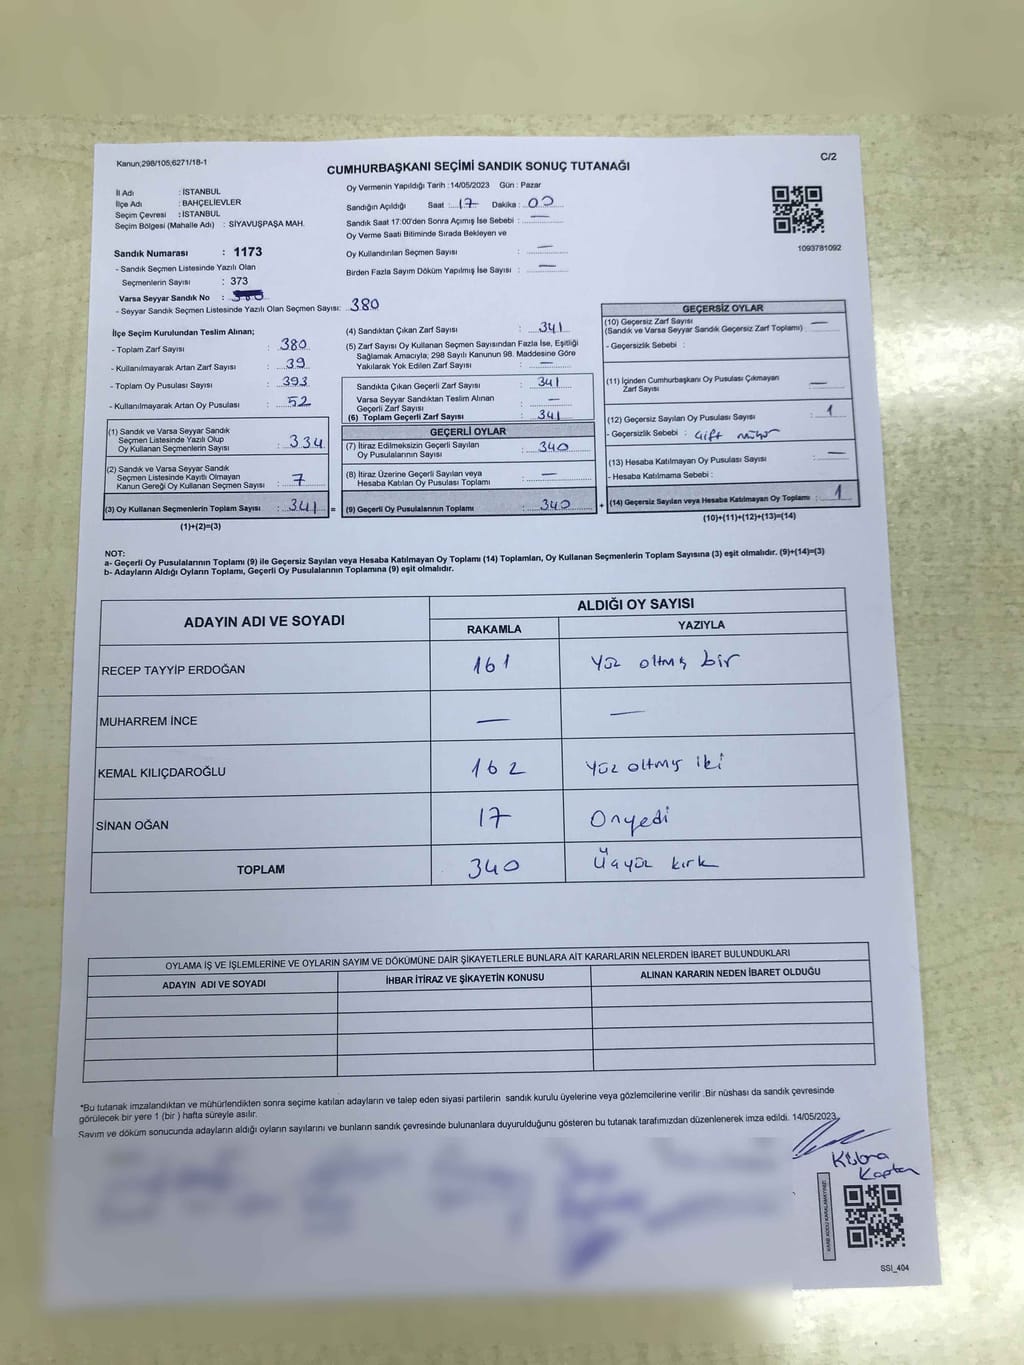 Kanun;298/105;6271/18-1
C/2
CUMHURBAŞKANI SEÇİMİ SANDIK SONUÇ TUTANAĞI
İl Adı : İSTANBUL
İlçe Adı : BAHÇELİEVLER
Seçim Çevresi : İSTANBUL
Seçim Bölgesi (Mahalle Adı) : SİYAVUŞPAŞA MAH.
Oy Vermenin Yapıldığı Tarih :14/05/2023 Gün : Pazar
Sandığın Açıldığı Saat : 17 Dakika : 00
Sandık Saat 17:00'den Sonra Açımış İse Sebebi : —
Oy Verme Saati Bitiminde Sırada Bekleyen ve
Oy Kullandırılan Seçmen Sayısı : —
Birden Fazla Sayım Döküm Yapılmış İse Sayısı : —
1093781092
Sandık Numarası : 1173
- Sandık Seçmen Listesinde Yazılı Olan
Seçmenlerin Sayısı : 373
Varsa Seyyar Sandık No :
- Seyyar Sandık Seçmen Listesinde Yazılı Olan Seçmen Sayısı: 380
İlçe Seçim Kurulundan Teslim Alınan;
- Toplam Zarf Sayısı : 380
- Kullanılmayarak Artan Zarf Sayısı : 39
- Toplam Oy Pusulası Sayısı : 393
- Kullanılmayarak Artan Oy Pusulası : 52
(1) Sandık ve Varsa Seyyar Sandık
Seçmen Listesinde Yazılı Olup
Oy Kullanan Seçmenlerin Sayısı : 334
(2) Sandık ve Varsa Seyyar Sandık
Seçmen Listesinde Kayıtlı Olmayan
Kanun Gereği Oy Kullanan Seçmen Sayısı : 7
(3) Oy Kullanan Seçmenlerin Toplam Sayısı : 341 =
(1)+(2)=(3)
(4) Sandıktan Çıkan Zarf Sayısı : 341
(5) Zarf Sayısı Oy Kullanan Seçmen Sayısından Fazla İse, Eşitliği
Sağlamak Amacıyla; 298 Sayılı Kanunun 98. Maddesine Göre
Yakılarak Yok Edilen Zarf Sayısı : —
Sandıkta Çıkan Geçerli Zarf Sayısı : 341
Varsa Seyyar Sandıktan Teslim Alınan
Geçerli Zarf Sayısı : —
(6) Toplam Geçerli Zarf Sayısı : 341
GEÇERLİ OYLAR
(7) İtiraz Edilmeksizin Geçerli Sayılan
Oy Pusulalarının Sayısı : 340
(8) İtiraz Üzerine Geçerli Sayılan veya
Hesaba Katılan Oy Pusulası Toplamı : —
(9) Geçerli Oy Pusulalarının Toplamı : 340 +
GEÇERSİZ OYLAR
(10) Geçersiz Zarf Sayısı : —
(Sandık ve Varsa Seyyar Sandık Geçersiz Zarf Toplamı)
- Geçersizlik Sebebi :
(11) İçinden Cumhurbaşkanı Oy Pusulası Çıkmayan
Zarf Sayısı : —
(12) Geçersiz Sayılan Oy Pusulası Sayısı : 1
- Geçersizlik Sebebi : Çift mühür
(13) Hesaba Katılmayan Oy Pusulası Sayısı : —
- Hesaba Katılmama Sebebi :
(14) Geçersiz Sayılan veya Hesaba Katılmayan Oy Toplamı : 1
(10)+(11)+(12)+(13)=(14)
NOT:
a- Geçerli Oy Pusulalarının Toplamı (9) ile Geçersiz Sayılan veya Hesaba Katılmayan Oy Toplamı (14) Toplamları, Oy Kullanan Seçmenlerin Toplam Sayısına (3) eşit olmalıdır. (9)+(14)=(3)
b- Adayların Aldığı Oyların Toplamı, Geçerli Oy Pusulalarının Toplamına (9) eşit olmalıdır.
ADAYIN ADI VE SOYADI
ALDIĞI OY SAYISI
RAKAMLA YAZIYLA
RECEP TAYYİP ERDOĞAN 161 Yüz altmış bir
MUHARREM İNCE — —
KEMAL KILIÇDAROĞLU 162 Yüz altmış iki
SİNAN OĞAN 17 Onyedi
TOPLAM 340 Üçyüz kırk
OYLAMA İŞ VE İŞLEMLERİNE VE OYLARIN SAYIM VE DÖKÜMÜNE DAİR ŞİKAYETLERLE BUNLARA AİT KARARLARIN NELERDEN İBARET BULUNDUKLARI
ADAYIN ADI VE SOYADI İHBAR İTİRAZ VE ŞİKAYETİN KONUSU ALINAN KARARIN NEDEN İBARET OLDUĞU
*Bu tutanak imzalandıktan ve mühürlendikten sonra seçime katılan adayların ve talep eden siyasi partilerin sandık kurulu üyelerine veya gözlemcilerine verilir .Bir nüshası da sandık çevresinde
görülecek bir yere 1 (bir ) hafta süreyle asılır.
Sayım ve döküm sonucunda adayların aldığı oyların sayılarını ve bunların sandık çevresinde bulunanlara duyurulduğunu gösteren bu tutanak tarafımızdan düzenlenerek imza edildi. 14/05/2023
Kübra
Kaptan
SSI_404